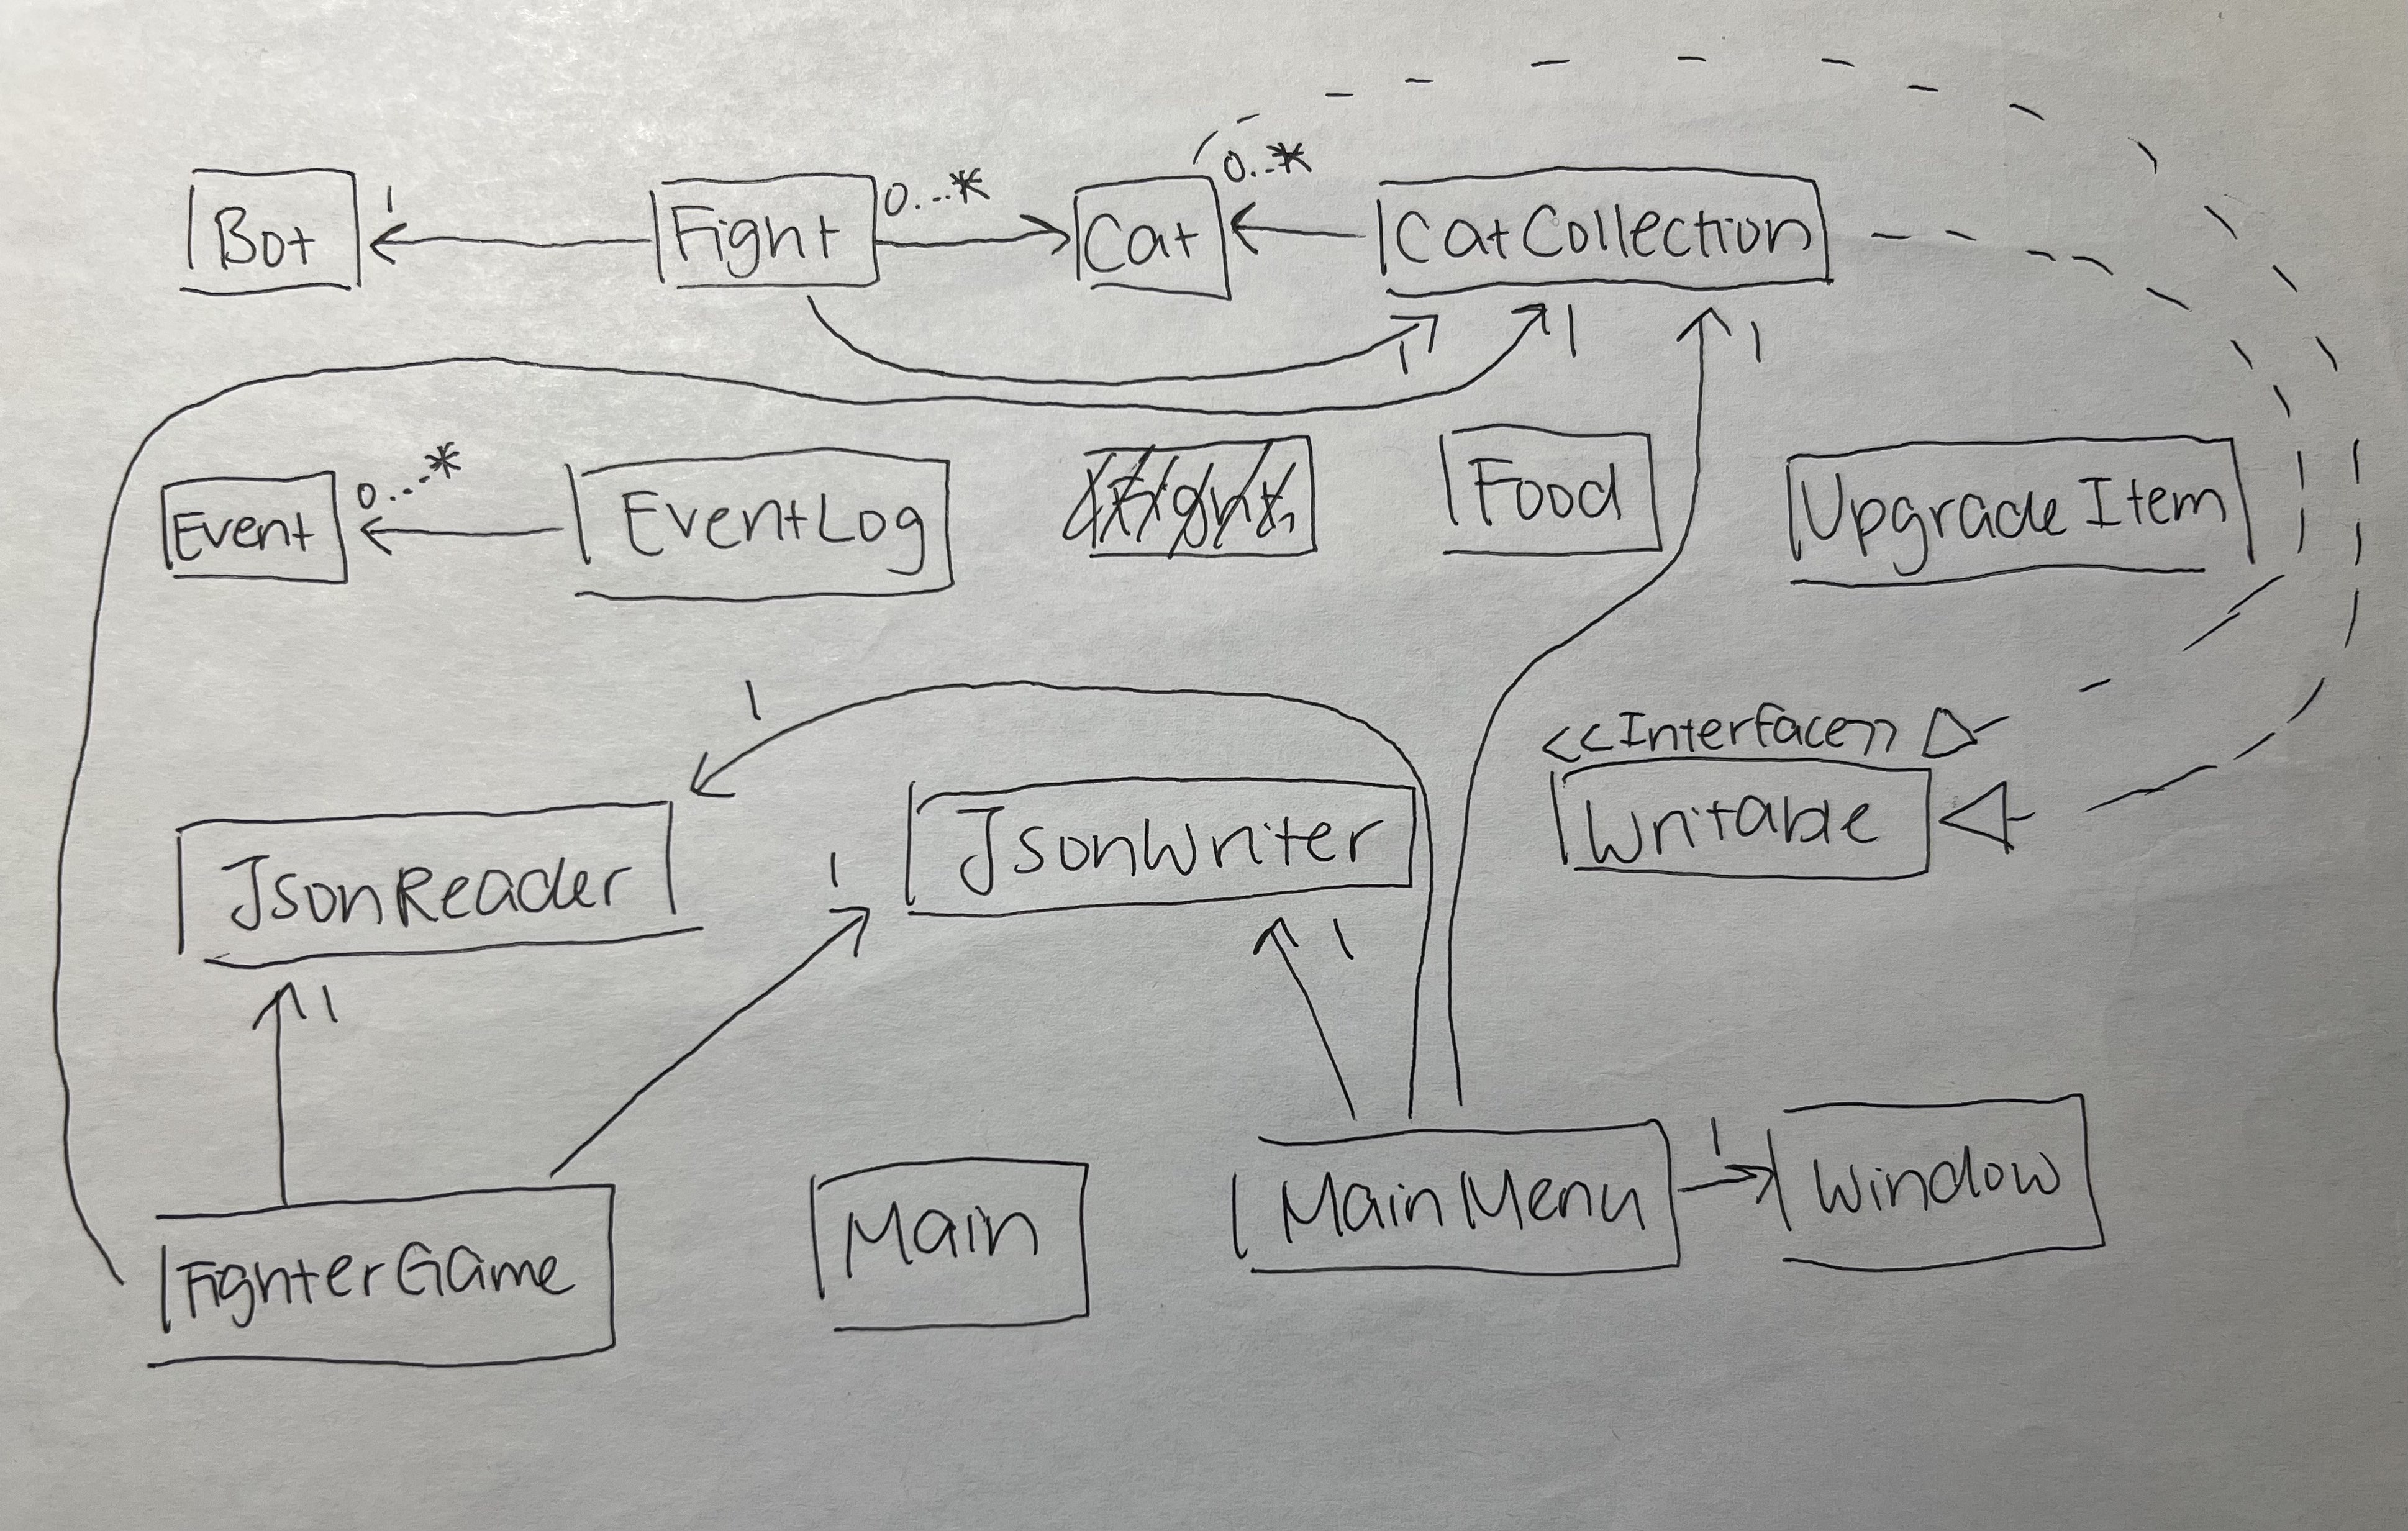 Bot
1
Fight
0...*
Cat
0..*
CatCollection
1
1
1
Event
0...*
EventLog
Food
UpgradeItem
1
<<Interface>>
Writable
JsonReader
1
JsonWriter
1
1
FighterGame
Main
MainMenu
1
Window